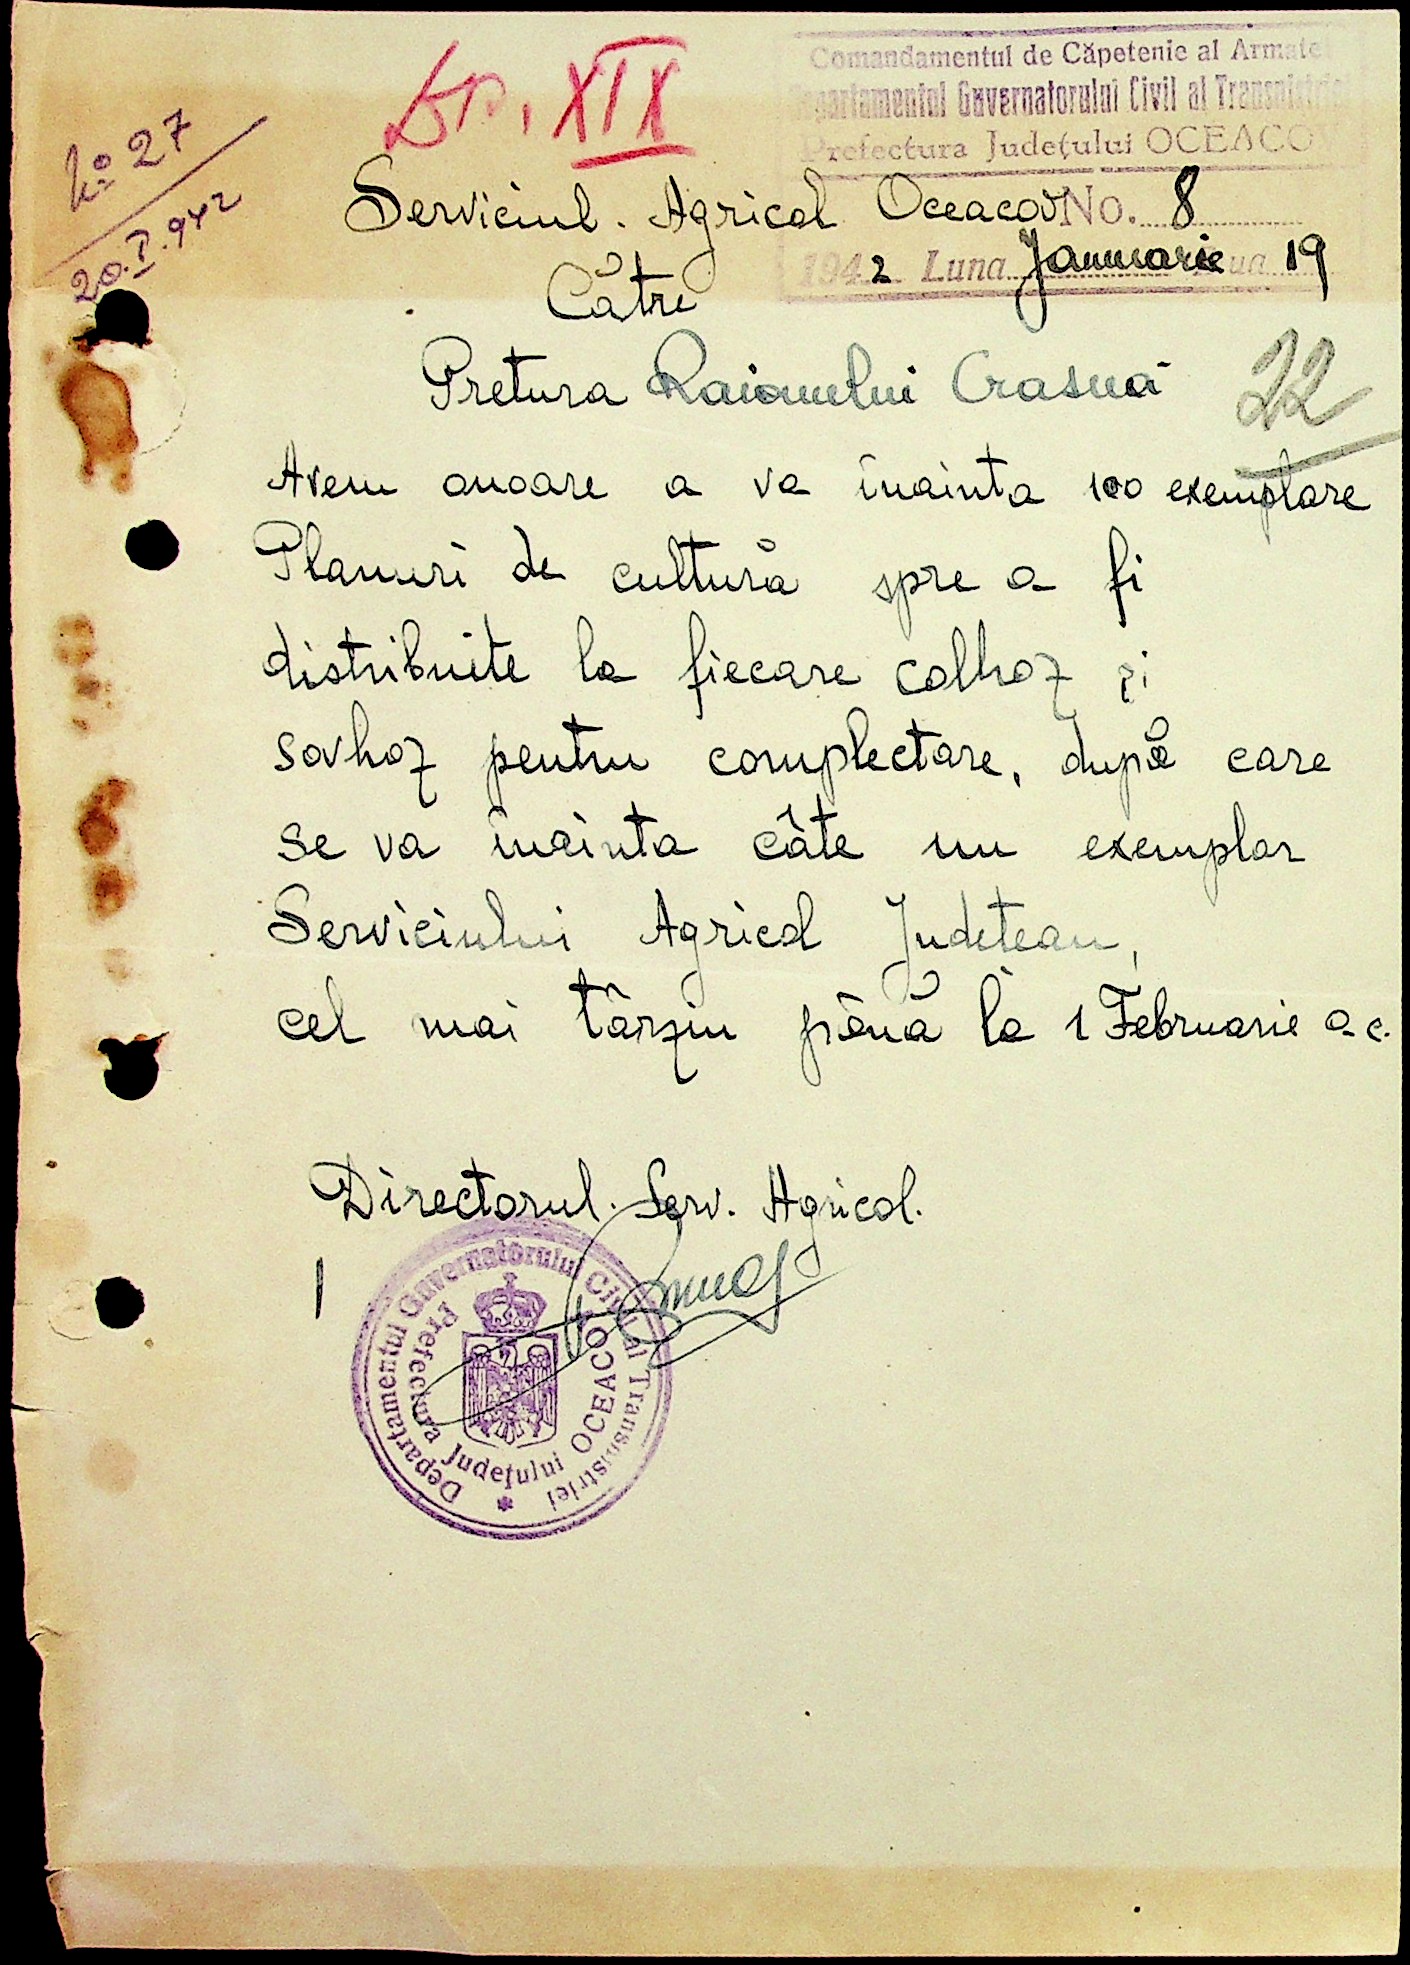 No 27
20.I.942
Dos. XIX
Comandamentul de Căpetenie al Armatei
Departamentul Guvernatorului Civil al Transnistriei
Prefectura Judeţului OCEACOV
Serviciul. Agricol Oceacov No. 8
1942 Luna Januarie Ziua 19
Către
Pretura Raionului Crasna
22
Avem onoare a va înainta 100 exemplare
Planuri de cultură spre a fi
distribuite la fiecare colhoz și
sovhoz pentru complectare, după care
se va înainta câte un exemplar
Serviciului Agricol Judetean,
cel mai târziu până la 1 Februarie a.c.
Directorul. Serv. Agricol.
Departamentul Guvernatorului Civil al Transnistriei
Prefectura Judeţului OCEACOV